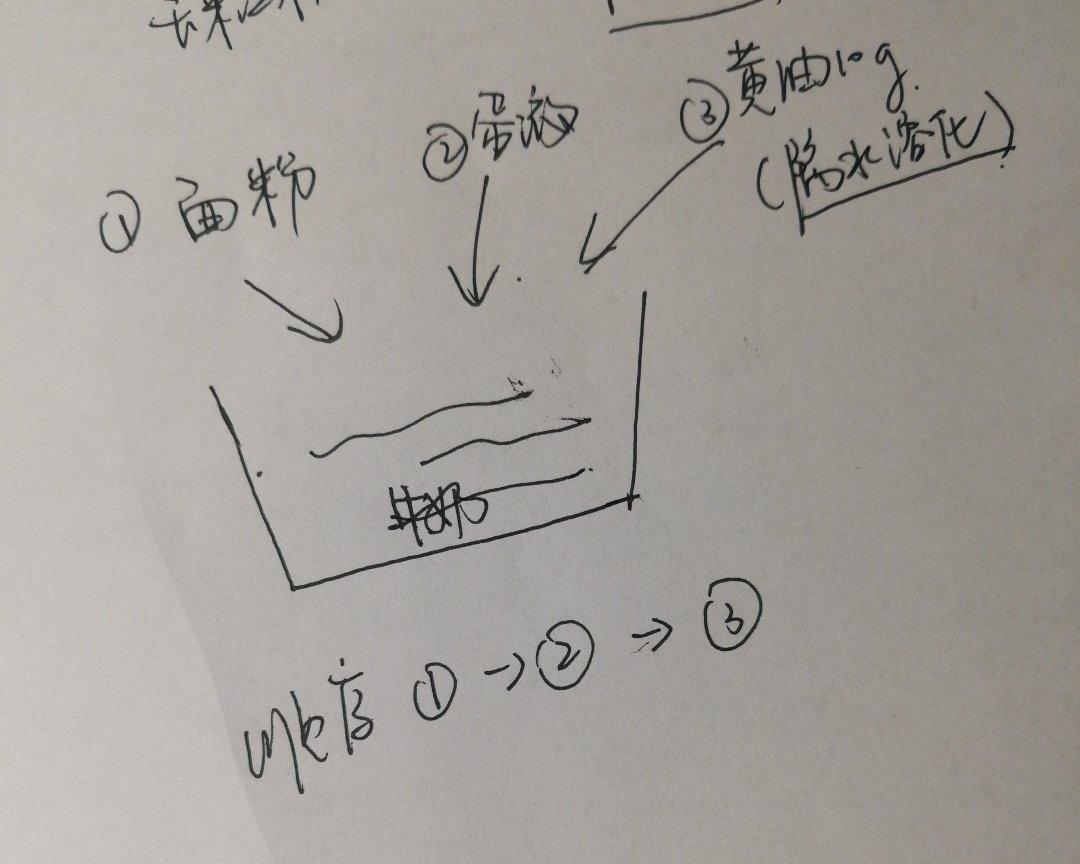 ③黄油10g.
(隔水溶化)
②蛋液
①面粉
牛奶
顺序①→②→③